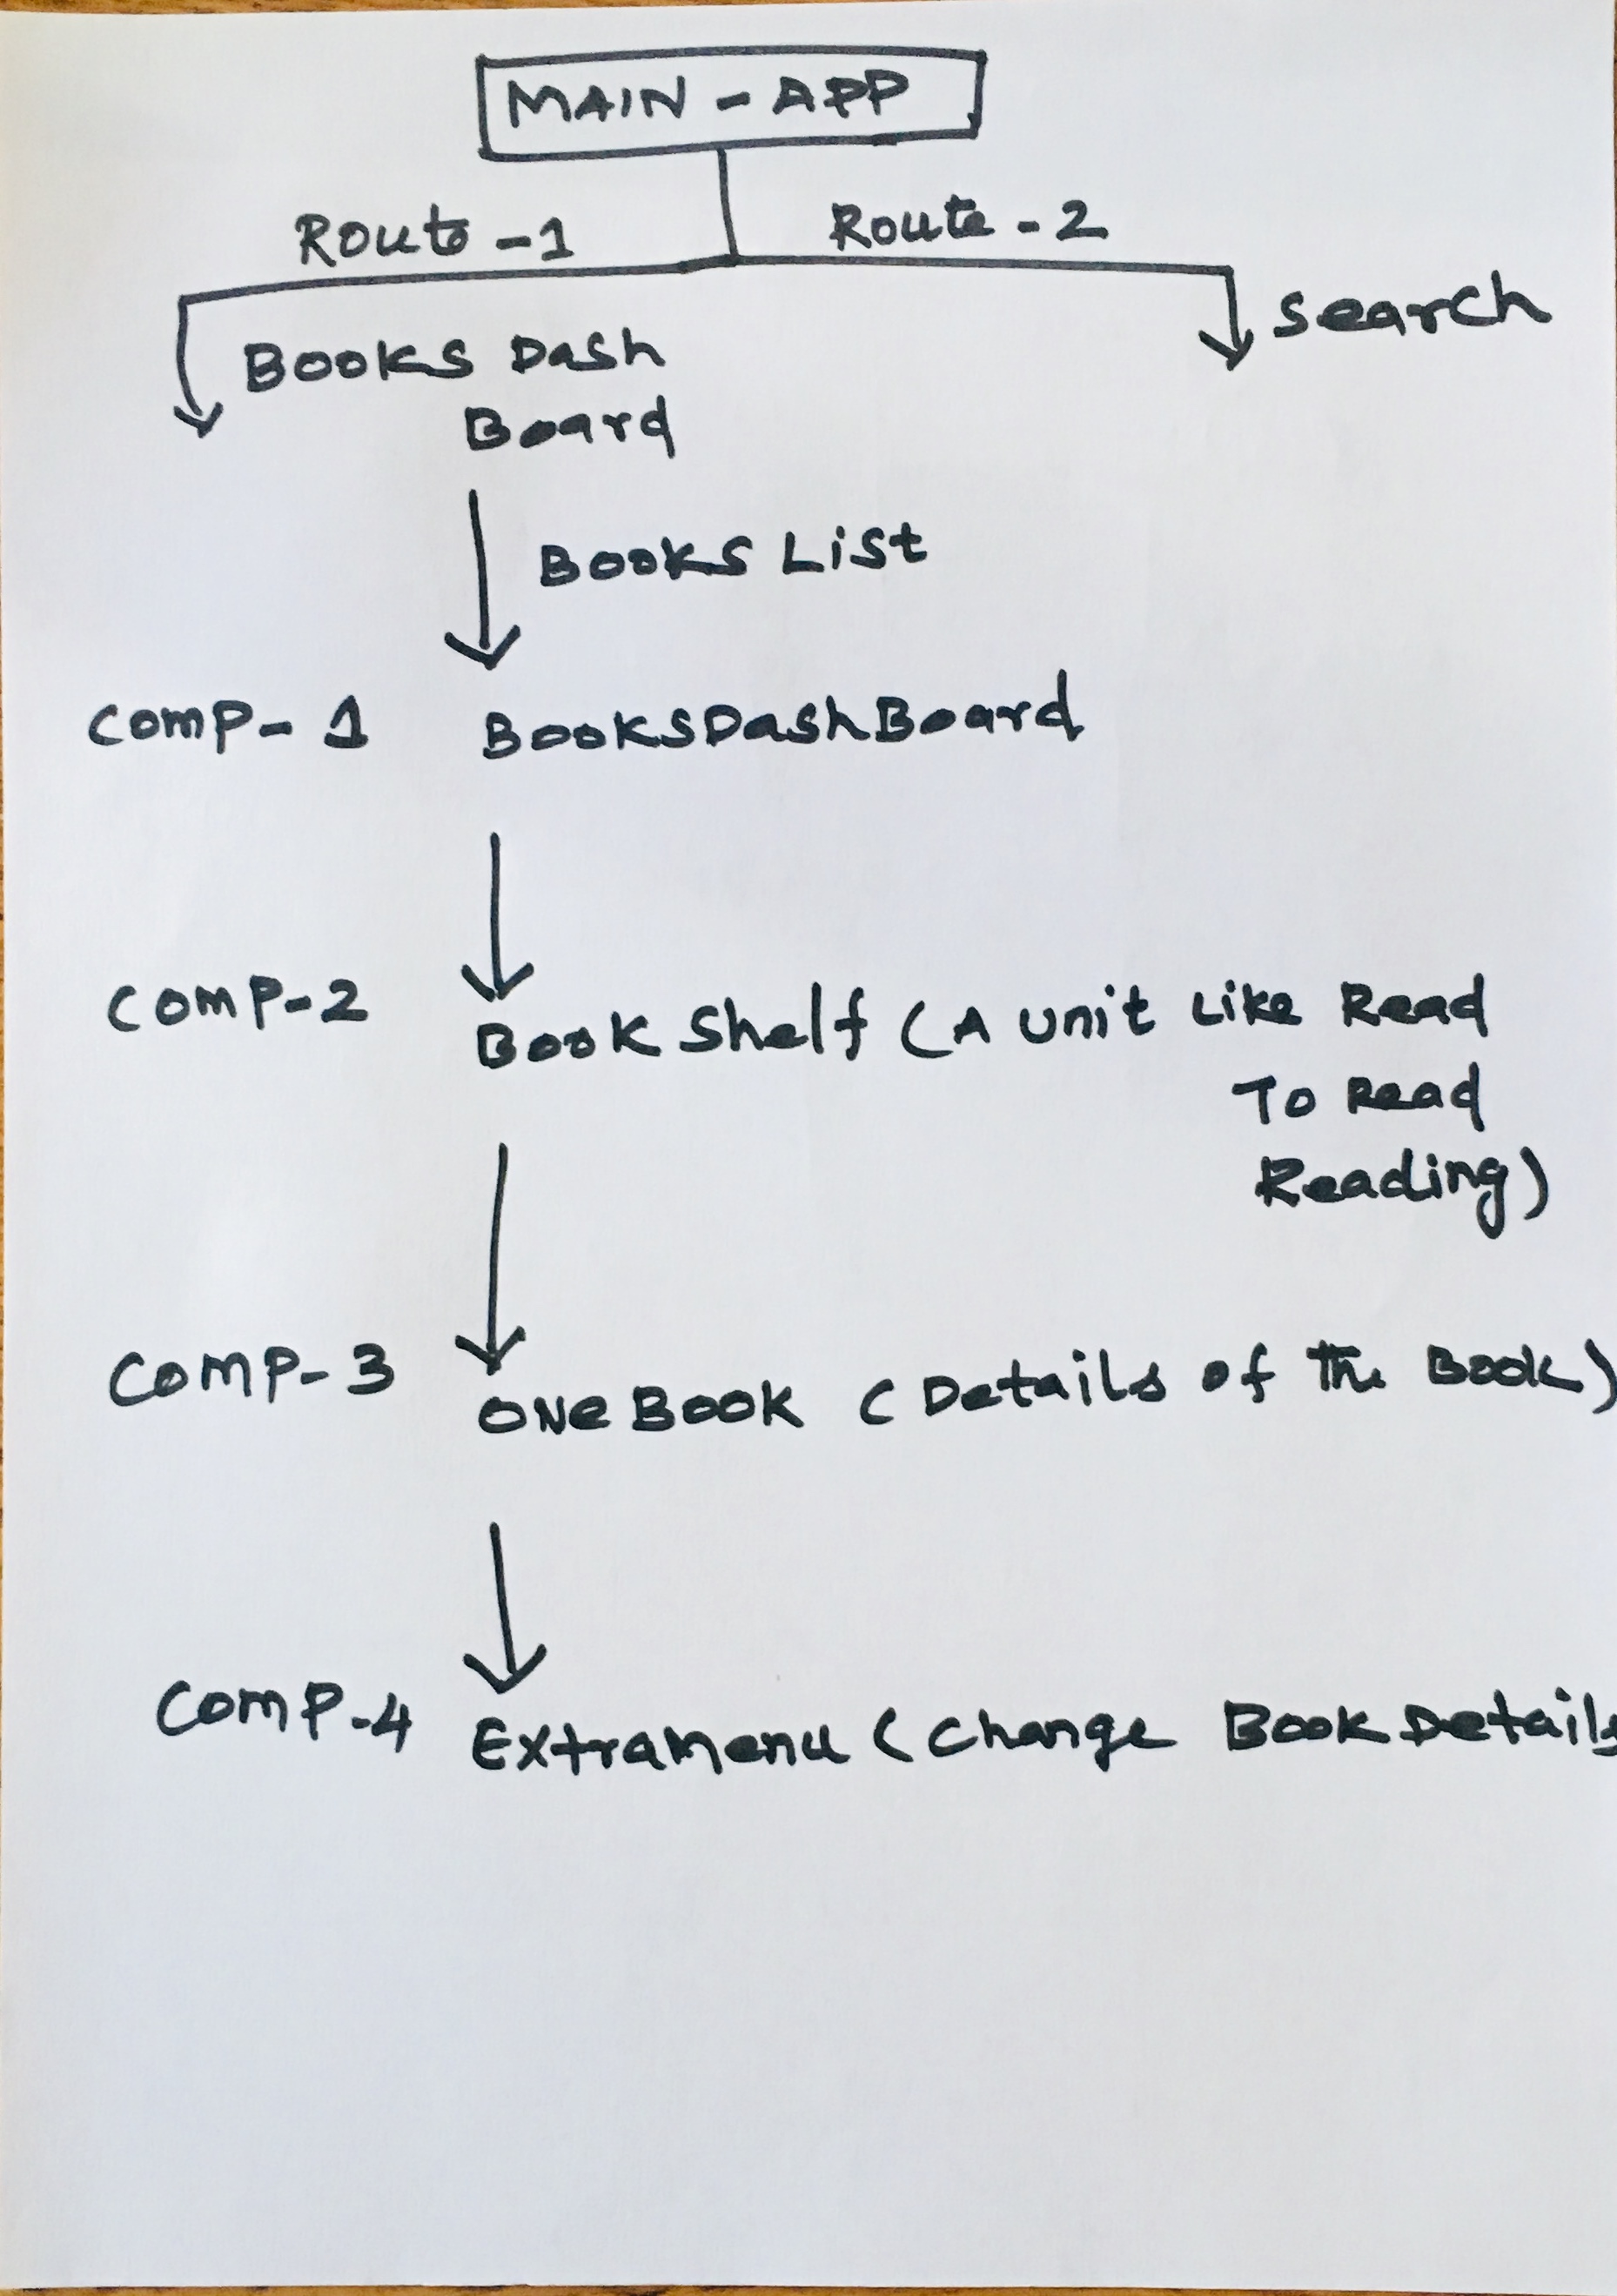 MAIN - APP
Route - 1
Route - 2
Search
Books Dash
Board
Books List
Comp- 1 BooksDashBoard
Comp-2 Book Shelf (A unit Like Read
To Read
Reading)
Comp-3 OneBook (Details of the Book)
Comp-4 Extramenu (Change Book Details